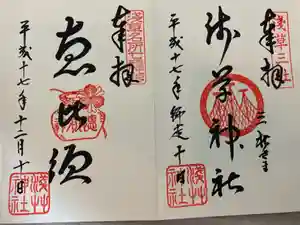 奉拝
浅草三社
三社さま
浅草神社
平成十七年師走十日
浅草神社
奉拝
浅草名所七福神
恵比須
平成十七年十二月十日
浅草神社